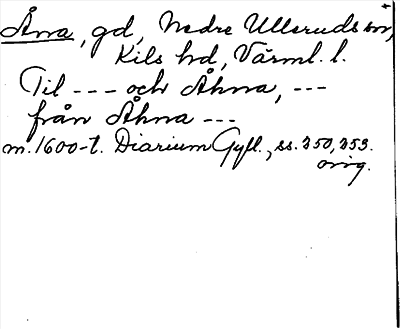 Åna, gd, Nedre Ulleruds sn,
Kils hd, Värml. l.
Til --- och Åhna, ---
från Åhna ---
m. 1600-t. Diarium Gyll., ss. 250, 253.
orig.